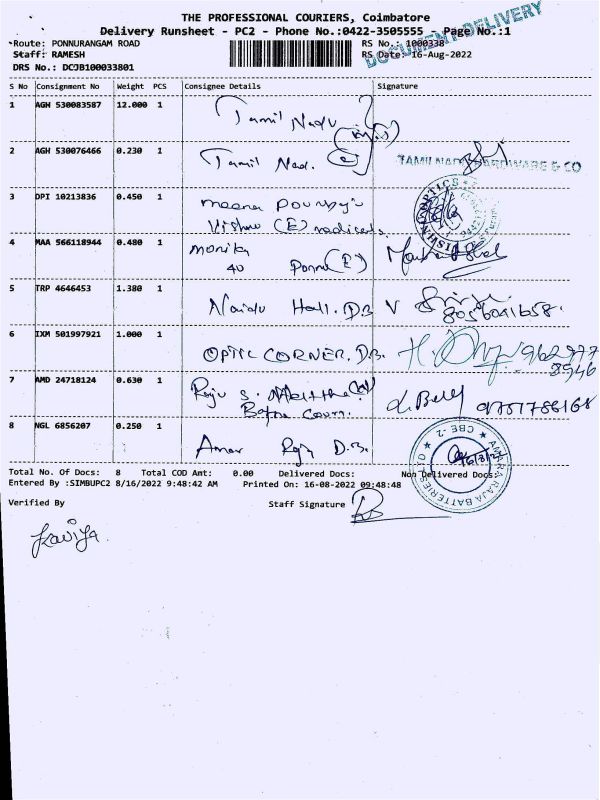 THE PROFESSIONAL COURIERS, Coimbatore
Delivery Runsheet - PC2 - Phone No.:0422-3505555 Page No.:1
DOCUMENT DELIVERY
*Route: PONNURANGAM ROAD RS No.: 1000338
Staff: RAMESH RS Date: 16-Aug-2022
DRS No.: DCJB100033801
S No Consignment No Weight PCS Consignee Details Signature
1 AGH 530083587 12.000 1 Tamil Nadu
2 AGH 530076466 0.230 1 Tamil Nad. (E) TAMIL NADU HARDWARE & CO
3 DPI 10213836 0.450 1 meena
Vishnu (E)
4 MAA 566118944 0.480 1 monika
40 Ponnu (E)
5 TRP 4646453 1.380 1 Naidu Hall. D.B V
8056041658.
6 IXM 501997921 1.000 1 OPTIC CORNER. D.B.
7 AMD 24718124 0.630 1 Raju S.
8 NGL 6856207 0.250 1 Amar Raja D.B.
AMARA RAJA BATTERIES CBE-2
Total No. Of Docs: 8 Total COD Amt: 0.00 Delivered Docs: Non Delivered Docs:
Entered By :SIMBUPC2 8/16/2022 9:48:42 AM Printed On: 16-08-2022 09:48:48
Verified By Staff Signature
Kaviya